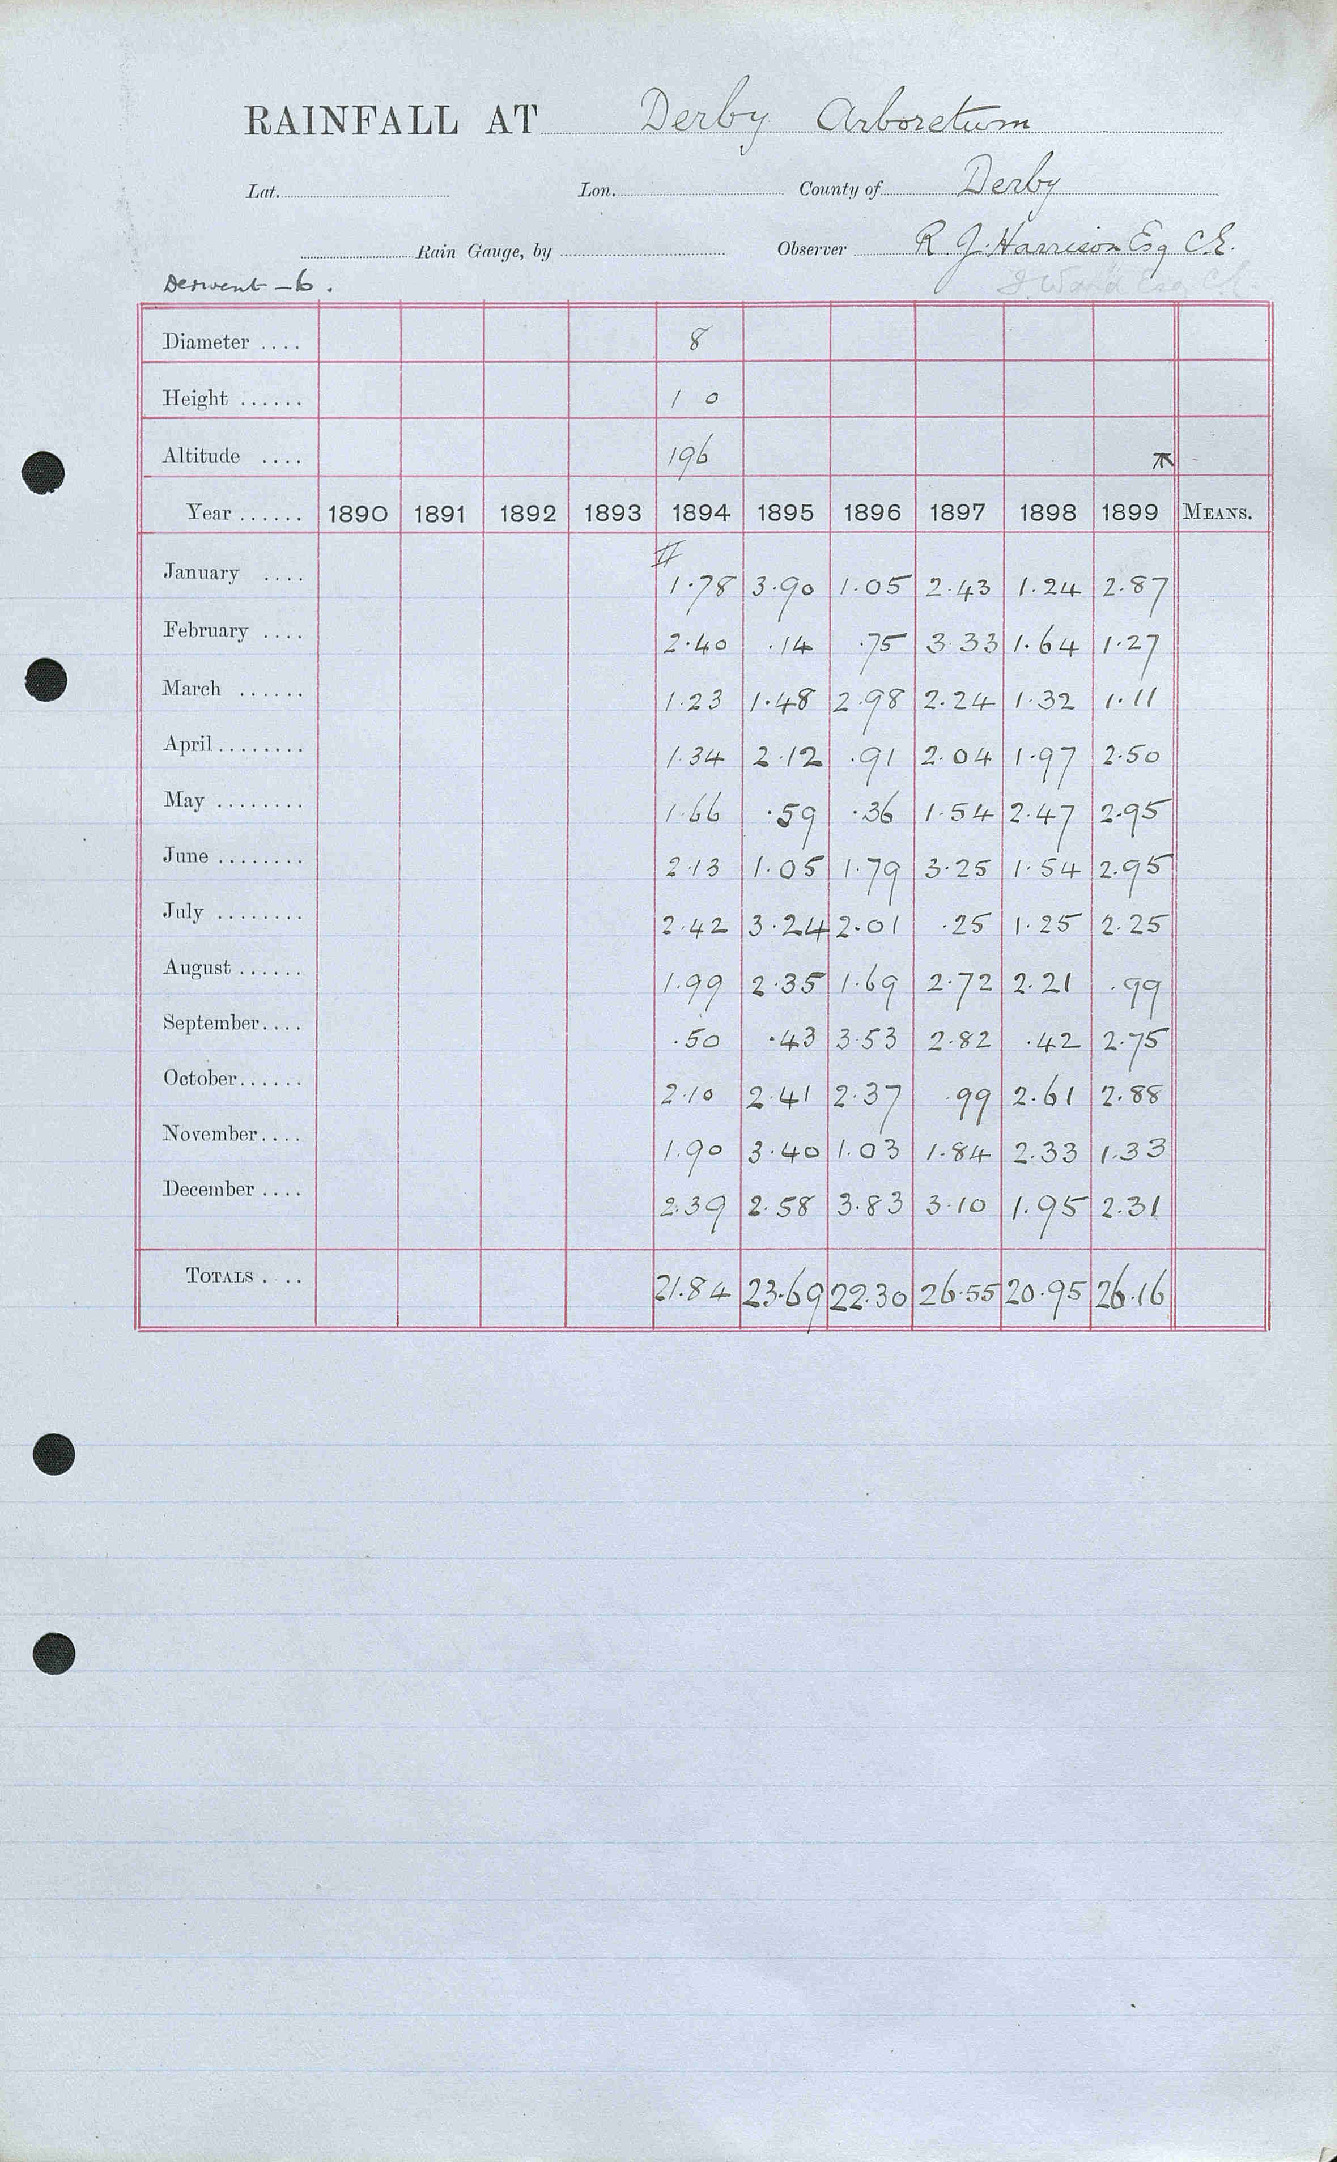 RAINFALL AT Derby Arboretum
Lat. Lon. County of Derby
Rain Gauge, by Observer R. J. Harrison Esq C.E.
Derwent - 6. Ward Esq C.E.
Diameter .... 8
Height ...... 1 0
Altitude .... 196
Year ...... 1890 1891 1892 1893 1894 1895 1896 1897 1898 1899 MEANS.
January .... 1.78 3.90 1.05 2.43 1.24 2.87
February .... 2.40 .14 .75 3.33 1.64 1.27
March ...... 1.23 1.48 2.98 2.24 1.32 1.11
April ........ 1.34 2.12 .91 2.04 1.97 2.50
May ........ 1.66 .59 .36 1.54 2.47 2.95
June ........ 2.13 1.05 1.79 3.25 1.54 2.95
July ........ 2.42 3.24 2.01 .25 1.25 2.25
August ...... 1.99 2.35 1.69 2.72 2.21 .99
September .... .50 .43 3.53 2.82 .42 2.75
October ...... 2.10 2.41 2.37 .99 2.61 2.88
November .... 1.90 3.40 1.03 1.84 2.33 1.33
December .... 2.39 2.58 3.83 3.10 1.95 2.31
TOTALS .... 21.84 23.69 22.30 26.55 20.95 26.16